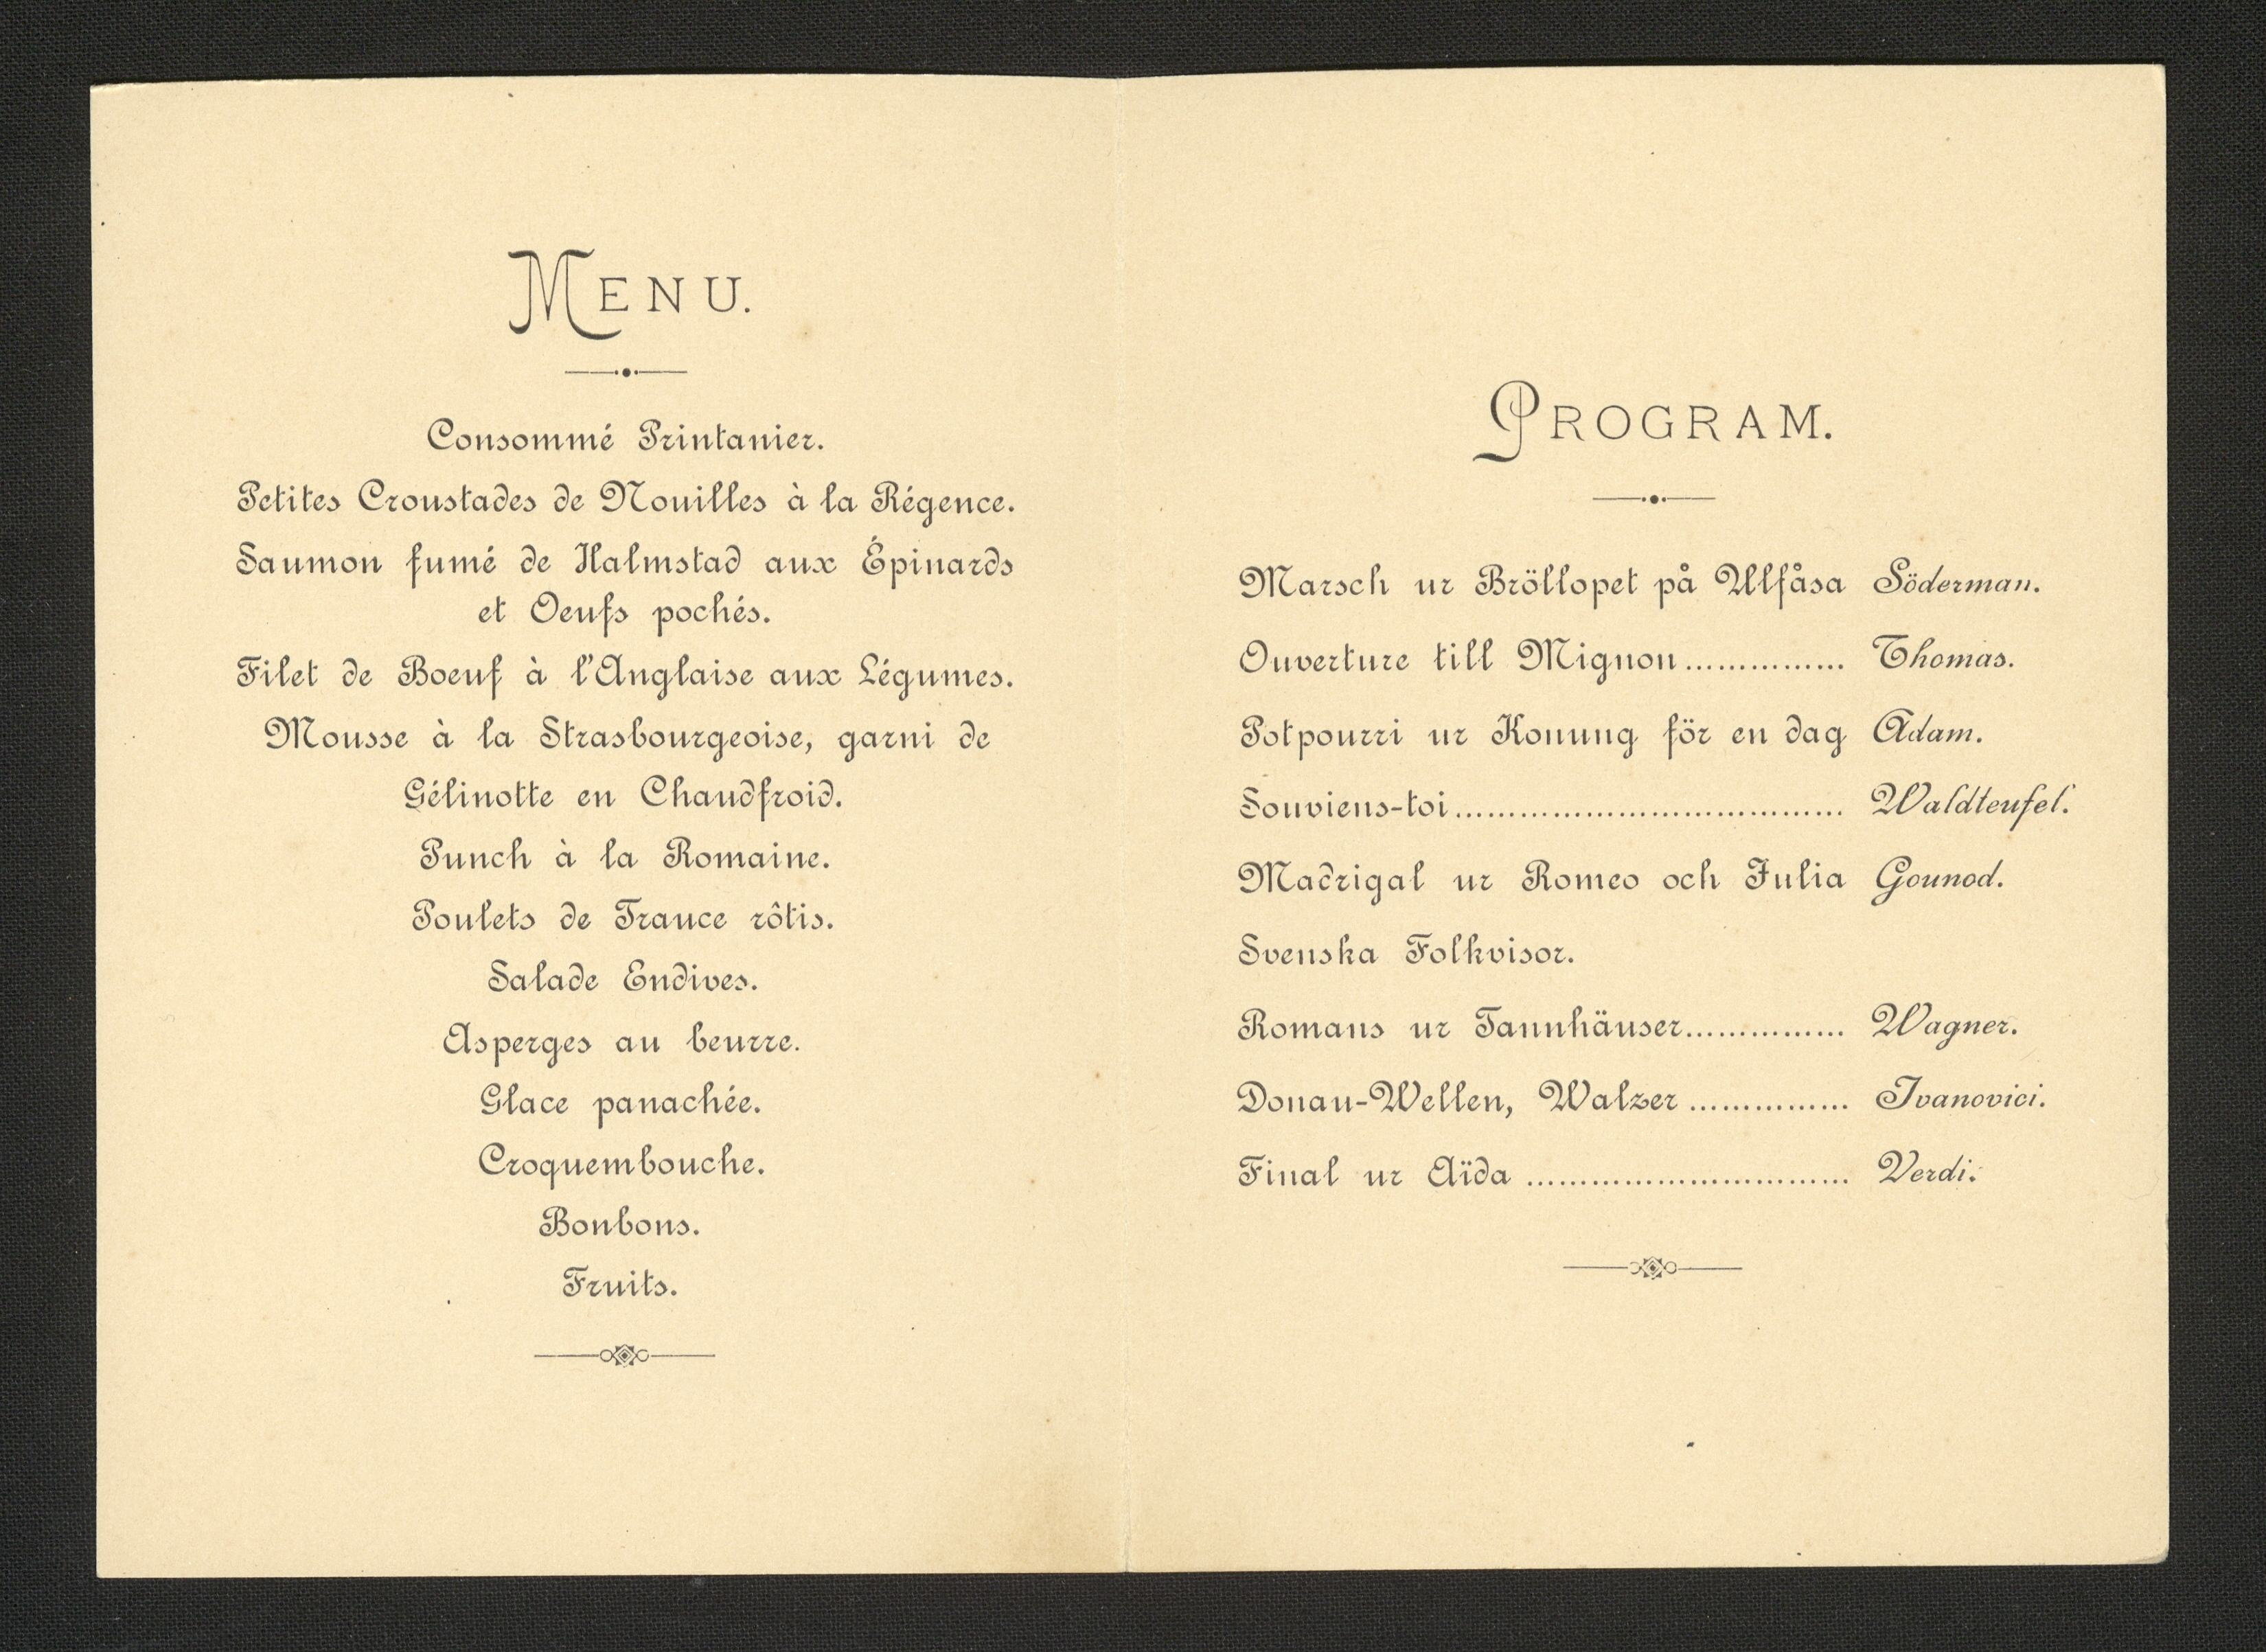 MENU.
Consommé Printanier.
Petites Croustades de Nouilles à la Régence.
Saumon fumé de Halmstad aux Épinards
et Oeufs pochés.
Filet de Boeuf à l'Anglaise aux Légumes.
Mousse à la Strasbourgeoise, garni de
Gélinotte en Chaudfroid.
Punch à la Romaine.
Poulets de France rôtis.
Salade Endives.
Asperges au beurre.
Glace panachée.
Croquembouche.
Bonbons.
Fruits.
PROGRAM.
Marsch ur Bröllopet på Ulfåsa Söderman.
Ouverture till Mignon............... Thomas.
Potpourri ur Konung för en dag Adam.
Souviens-toi..................................... Waldteufel.
Madrigal ur Romeo och Julia Gounod.
Svenska Folkvisor.
Romans ur Tannhäuser............... Wagner.
Donau-Wellen, Walzer ............... Ivanovici.
Final ur Aïda ............................... Verdi.